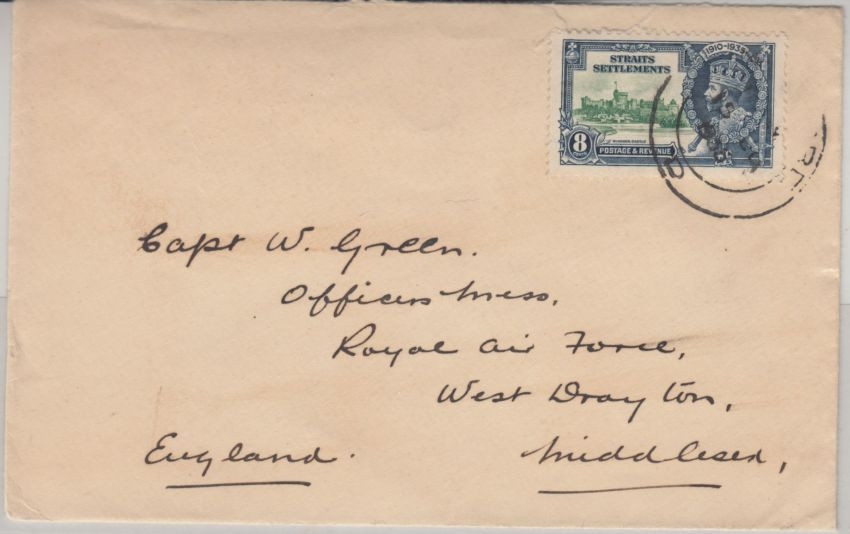 1910-1935
STRAITS
SETTLEMENTS
WINDSOR CASTLE
8
CENTS
POSTAGE & REVENUE
Capt W. Green.
Officers Mess,
Royal Air Force,
West Drayton,
England. Middlesex,